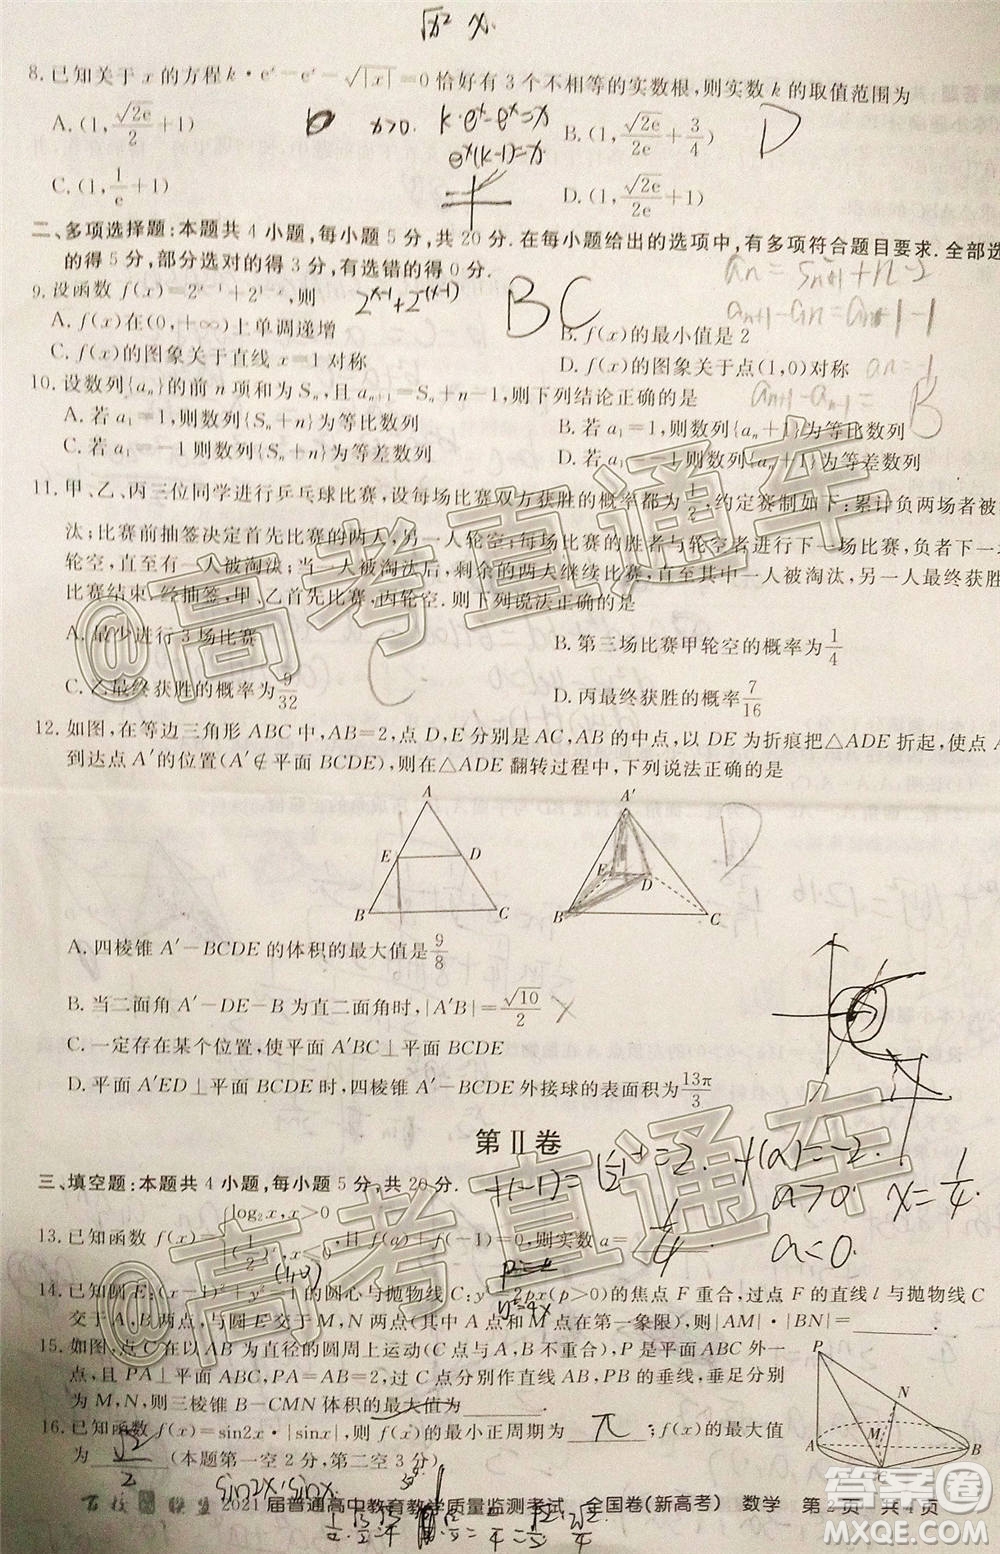 √x² x.
8.已知关于 x 的方程 k·eˣ-eˣ-√|x|=0 恰好有 3 个不相等的实数根,则实数 k 的取值范围为
A.(1,√2e/2+1)
B.(1,√2e/2e+3/4)
x>0. k·eˣ-eˣ=x
D
eˣ(k-1)=x
C.(1,1/e+1)
D.(1,√2e/2e+1)
二、多项选择题:本题共 4 小题,每小题 5 分,共 20 分.在每小题给出的选项中,有多项符合题目要求.全部选
的得 5 分,部分选对的得 3 分,有选错的得 0 分.
9.设函数 f(x)=2ˣ⁻¹+2¹⁻ˣ,则
BC
A.f(x)在(0,+∞)上单调递增
B.f(x)的最小值是 2
C.f(x)的图象关于直线 x=1 对称
D.f(x)的图象关于点(1,0)对称
10.设数列{aₙ}的前 n 项和为 Sₙ,且 aₙ₊₁=Sₙ+n-1,则下列结论正确的是
B
A.若 a₁=1,则数列{Sₙ+n}为等比数列
B.若 a₁=1,则数列{aₙ+1}为等比数列
C.若 a₁=-1,则数列{Sₙ+n}为等差数列
D.若 a₁=-1,则数列{aₙ}为等差数列
11.甲、乙、丙三位同学进行乒乓球比赛,设每场比赛双方获胜的概率都为1/2,约定赛制如下:累计负两场者被
汰;比赛前抽签决定首先比赛的两人,另一人轮空;每场比赛的胜者与轮空者进行下一场比赛,负者下一
轮空,直至有一人被淘汰;当一人被淘汰后,剩余的两人继续比赛,直至其中一人被淘汰,另一人最终获
比赛结束.经抽签,甲、乙首先比赛,丙轮空.则下列说法正确的是
A.最少进行 3 场比赛
B.第三场比赛甲轮空的概率为1/4
C.乙最终获胜的概率为9/32
D.丙最终获胜的概率为7/16
C
12.如图,在等边三角形 ABC 中,AB=2,点 D,E 分别是 AC,AB 的中点,以 DE 为折痕把△ADE 折起,使点 A
到达点 A′的位置(A′∉平面 BCDE),在△ADE 翻转过程中,下列说法正确的是
A E D B C
A′ E D B C
D
A.四棱锥 A′-BCDE 的体积的最大值是9/8
B.当二面角 A′-DE-B 为直二面角时,|A′B|=√10/2
C.一定存在某个位置,使平面 A′BE⊥平面 BCDE
D.平面 A′ED⊥平面 BCDE 时,四棱锥 A′-BCDE 外接球的表面积为13π/3
第Ⅱ卷
f(-1)=(1/2)⁻¹=2. f(a)=-2.
三、填空题:本题共 4 小题,每小题 5 分,共 20 分.
a>0. x=1/4
13.已知函数 f(x)={log₂x,x>0 (1/2)ˣ,x≤0,且 f(a)+f(-1)=0,则实数 a= 1/4
a=0.
14.已知圆 E:(x-1)²+y²=1 的圆心与抛物线 C:y²=2px(p>0)的焦点 F 重合,过点 F 的直线 l 与抛物线 C
y²=4x
交于 A,B 两点,与圆 E 交于 M,N 两点(A,M 在第一象限),则|AM|·|BN|=______.
15.如图,点 C 在以 AB 为直径的圆周上运动(C 点与 A,B 不重合),P 是平面 ABC 外一点,
且 PA⊥平面 ABC,|PA|=|AB|=2,过 A 点分别作直线 AM⊥PC,AN⊥PB,垂足分别
为 M,N,则三棱锥 B-CMN 体积的最大值为______.
P N M A B C
16.已知函数 f(x)=sin2x·|sinx|,则 f(x)的最小正周期为 π ;f(x)的最大值
为 √2/2 .(本题第一空 2 分,第二空 3 分)
sin2x·sinx.
2021 届普通高中教育教学质量监测考试 全国卷(新高考) 数学 第 2 页 共 4 页
@高考直通车
@高考直通车
答案圈
MXQE.COM